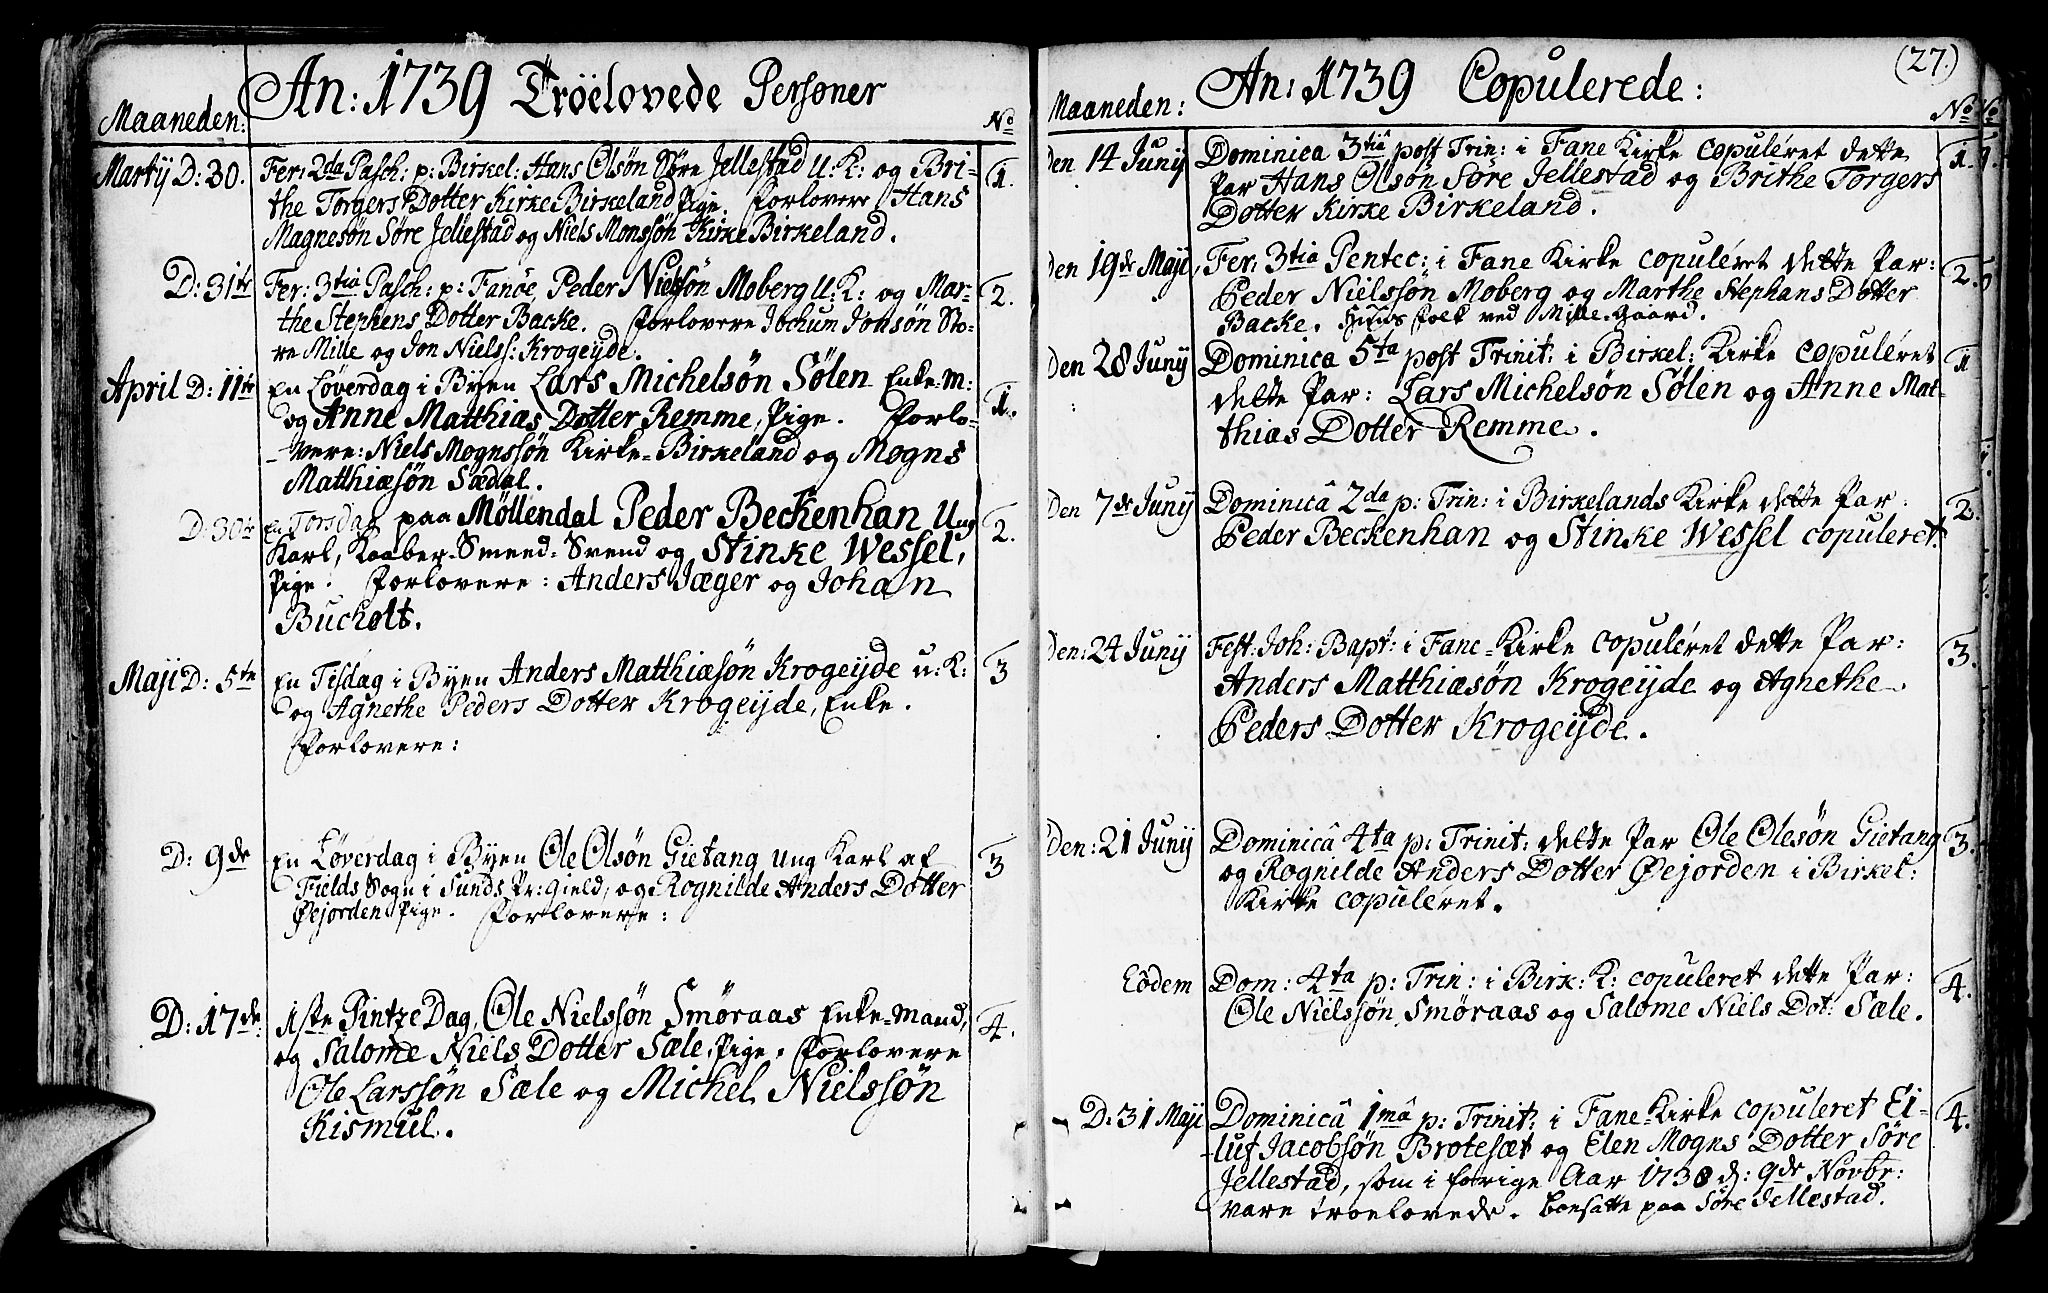 An: 1739 Tröelovede Personer
Maaneden: No
Martij D: 30. Fer: 2da Pasch: p: Birkel: Hans Olsön Söre Jellestad U: K: og Bri- 1.
the Torgers Dotter Kirke Birkeland Pige. Forlovere Hans
Magnesön Söre Jellestad og Niels Monssön Kirke Birkeland.
D: 31te Fer: 3tia Pasch: p: Fanöe, Peder Nielssön Moberg U: K: og Mar- 2.
the Stephens Dotter Backe. Forlovere Jochum Jonsön Sto-
re Mille og Jon Niels: Krogeijde.
April D: 11te En Löverdag i Byen Lars Michelsön Sölen Enke-M: 1.
og Anne Matthias Dotter Remme, Pige. Forlo-
vere: Niels Mognssön Kirke-Birkeland og Mogns
Matthiæsön Sædal.
D: 30te En Torsdag paa Möllendal Peder Beckenhan Ung 2.
Karl, Kaaber-Smeed-Svend og Stinke Wessel,
Pige. Forlovere: Anders Jæger og Johan
Bucholt.
Maji D: 5te En Tisdag i Byen Anders Matthiæsön Krogeijde u: K: 3
og Agnethe Peders Dotter Krogeijde, Enke.
Forlovere:
D: 9de En Löverdag i Byen Ole Olsön Gietang Ung Karl af 3
Fields Sogn i Sunds Pr: Gield, og Rognilde Anders Dotter
Øejorden Pige. Forlovere:
D: 17de 1ste Pintze Dag, Ole Nielssön Smöraas Enke-Mand, 4.
og Salome Niels Dotter Sæle, Pige. Forlovere
Ole Larssön Sæle og Michel Nielssön
Kismul.
(27.)
An: 1739 Copulerede:
Maaneden: No No
Den 14 Junij Dominica 3tiâ post Trin: i Fane Kirke copuléret dette 1. 1.
Par Hans Olsön Söre Jellestad og Brithe Torgers
Dotter Kirke Birkeland.
Den 19de Maji, Fer: 3tia Pentec: i Fane Kirke copuléret dette Par: 2.
Peder Nielssön Moberg og Marthe Stephans Dotter
Backe. Huus folk ved Mille-Gaard.
Den 28 Junij Dominica 5ta post Trinit: i Birkel: Kirke copuléret 1
dette Par: Lars Michelsön Sölen og Anne Mat-
thias Dotter Remme.
Den 7de Junij Dominicâ 2da p: Trin: i Birkelands Kirke dette Par: 2.
Peder Beckenhan og Stinke Wessel copuleret.
Den: 24 Junij Fest: Joh: Bapt: i Fane-Kirke copuléret dette Par: 3.
Anders Matthiæsön Krogeijde og Agnethe
Peders Dotter Krogeijde.
Den: 21 Junij Dominicâ 4ta p: Trinit: dette Par Ole Olesön Gietang 3.
og Rognilde Anders Dotter Øejorden i Birkel:
Kirke copuléret.
Eödem Dom: 4ta p: Trin: i Birk: K: copuleret dette Par: 4.
Ole Nielssön Smöraas og Salome Niels Dot: Sæle.
D: 31 Maji Dominicâ 1mâ p: Trinit: i Fane-Kirke copuleret Ei- 4.
luf Jacobsön Brotesæt og Elen Mogns Dotter Söre
Jellestad, som i forige Aar 1738 d: 9de Novbr:
vare troelovede. Bonsatte paa Söre Jellestad.